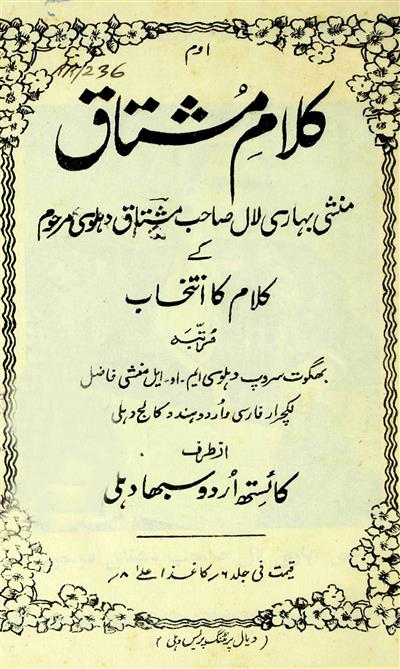 اوم
111/236
کلامِ مُشتاق
منشی بہاری لال صاحب مشتاق دہلوی مرحوم
کے
کلام کا انتخاب
مُرتّبہ
بھگوت سروپ دہلوی ایم۔ او۔ ایل منشی فاضل
لکچرار فارسی و اردو ہندو کالج دہلی
از طرف
کائستھ اُردو سبھا دہلی
قیمت فی جلد ۶؍ کاغذ اعلیٰ ۸؍
(دیال پرنٹنگ پریس دہلی)